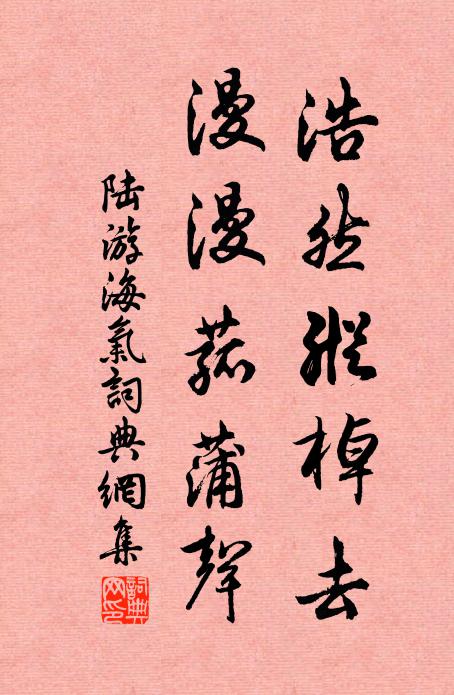 浩然縱棹去
漫漫菰蒲聲
陸游海氣詞典網集
詞典網印